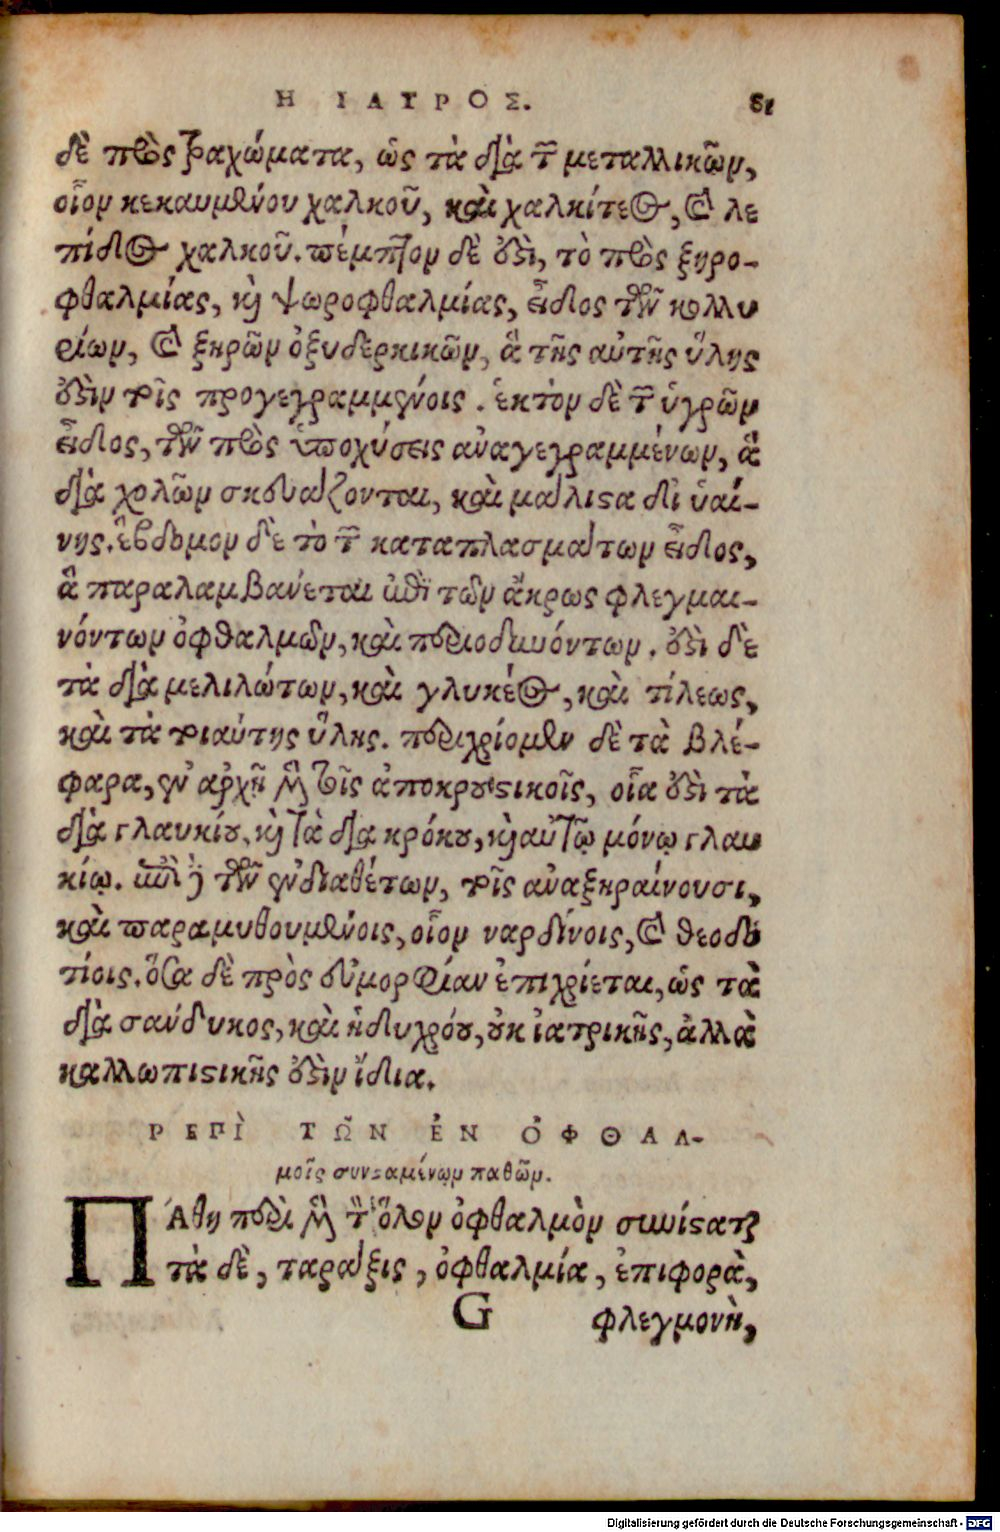 Η ΙΑΤΡΟΣ. 81
δὲ πρὸς τραχώματα, ὡς τὰ διὰ τῶν μεταλλικῶν,
οἷον κεκαυμένου χαλκοῦ, καὶ χαλκίτεως, καὶ λε
πίδος χαλκοῦ. πέμπτον δὲ ἐστὶ, τὸ πρὸς ξηρο-
φθαλμίας, καὶ ψωροφθαλμίας, εἶδος τῶν κολλυ
ρίων, καὶ ξηρῶν ὀξυδερκικῶν, ἃ τῆς αὐτῆς ὕλης
ἐστὶν τοῖς προγεγραμμένοις. ἑκτὸν δὲ τῶν ὑγρῶν
εἶδος, τῶν πρὸς ὑποχύσεις ἀναγεγραμμένων, ἃ
διὰ χολῶν σκευάζονται, καὶ μάλιστα δι ὑαί-
νης. ἕβδομον δὲ τὸ τῶν καταπλασμάτων εἶδος,
ἃ παραλαμβανέται ἐπὶ τῶν ἄκρως φλεγμαι-
νόντων ὀφθαλμῶν, καὶ περιοδυνόντων. ἐστὶ δὲ
τὰ διὰ μελιλώτων, καὶ γλυκέος, καὶ τίλεως,
καὶ τὰ τοιαύτης ὕλης. περιχρίομεν δὲ τὰ βλέ-
φαρα, ἐν ἀρχῇ μὲν τοῖς ἀποκρουστικοῖς, οἷα ἐστὶ τὰ
διὰ γλαυκίου, καὶ τὰ διὰ κρόκου, καὶ αὐτῷ μόνῳ γλαυ
κίῳ. ἐπὶ δὲ τῶν ἐνδιαθέτων, τοῖς ἀναξηραίνουσι,
καὶ παραμυθουμένοις, οἷον ναρδίνοις, καὶ θεοδο
τίοις. ὅσα δὲ πρὸς εὐμορφίαν ἐπιχρίεται, ὡς τὰ
διὰ σανδυκος, καὶ ἡδυχρόου, οὐκ ἰατρικῆς, ἀλλὰ
καλλωπιστικῆς ἐστὶν ἴδια.
ΡΕΠῚ ΤΩ͂Ν ἘΝ ὈΦΘΑΛ-
μοῖς συνσταμένων παθῶν.
ΠΆθη περὶ μὲν τὸν ὅλον ὀφθαλμὸν συνίσταται
τὰ δὲ, ταράξις, ὀφθαλμία, ἐπιφορὰ,
G φλεγμονὴ,
Digitalisierung gefördert durch die Deutsche Forschungsgemeinschaft - DFG